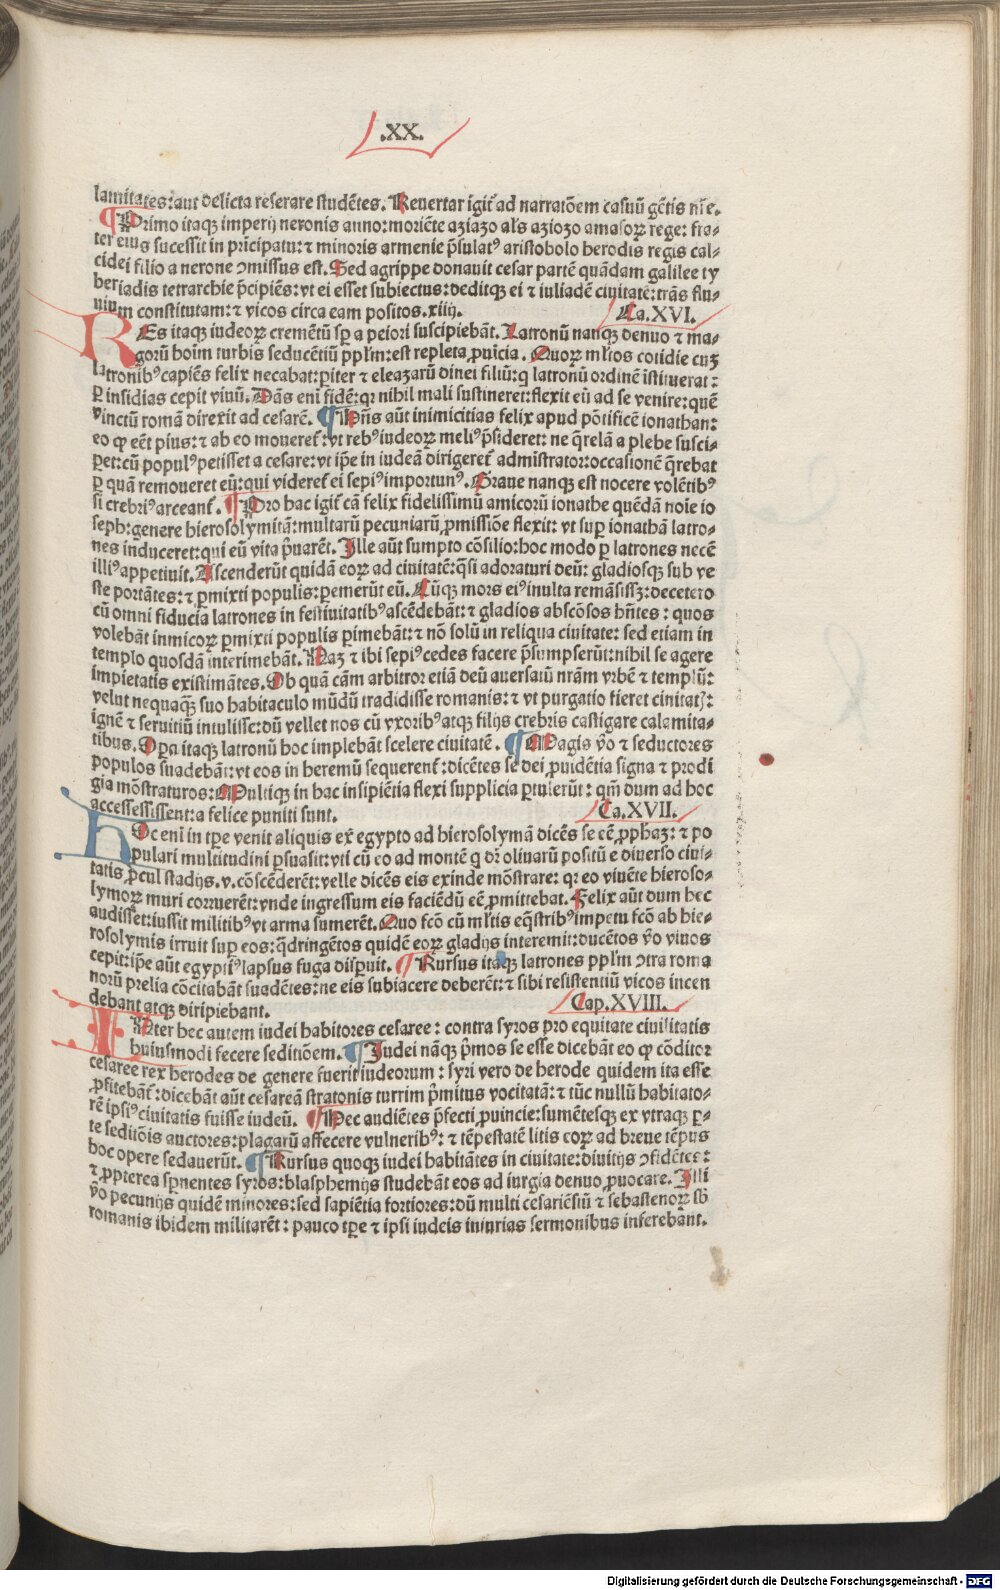 .XX.
lamitates: aut delicta reserare studētes. Revertar igit̄ ad narratōem casuū gētis nr̄e.
¶ Primo itaqꝫ imperij neronis anno: moriēte aziazo al's aziozo amasoꝝ rege: fra-
ter eius sucessit in pricipatu: ⁊ minoris armenie p̄sulatꝰ aristobolo herodis regis cal-
cidei filio a nerone ꝯmissus est. Sed agrippe donauit cesar partē quādam galilee ty
beriadis tetrarchie p̄cipiēs: vt ei esset subiectus: deditqꝫ ei ⁊ iuliadē ciuitatē: trās flu-
uium constitutam: ⁊ vicos circa eam positos. xiiij. Ca. XVI.
REs itaqꝫ iudeoꝝ cremētū sꝑ a peiori suscipiebāt. Latronū nanqꝫ denuo ⁊ ma-
gorū hoim̄ turbis seducētiū pplm̄: est repleta ꝓuīcia. Quoꝝ ml̄tos cotidie cuꝫ
latronibꝰ capiēs felix necabat: pariter ⁊ eleazarū dinei filiū: q̄ latronū ordinē īstituerat:
ꝑ insidias cepit viuū. Dās eni fidē: qꝛ nihil mali sustineret: flexit eū ad se venire: quē
vinctū romā direxit ad cesarē. ¶ Hn̄s aūt inimicitias felix apud pōtificē ionathan:
eo ꝙ eēt pius: ⁊ ab eo moueret̄: vt rebꝰ iudeoꝝ meliꝰ p̄sideret: ne q̄relā a plebe susci-
ꝑet: cū populꝰ petisset a cesare: vt ip̄e in iudeā dirigeret̄ admīstrator: occasionē q̄rebat
ꝑ quā remoueret eū: qui videret̄ ei sepiꝰ importunꝰ. Graue nanqꝫ est nocere volētibꝰ
si crebriꝰ arceant̄. ¶ Pro hac igit̄ cā felix fidelissimū amicorū ionathe quēdā noīe io
seph: genere hierosolymitā: multarū pecuniarū ꝓmissiōe flexit: vt suꝑ ionathā latro-
nes induceret: qui eū vita p̄uarēt. Ille aūt sumpto cōsilio: hoc modo ꝑ latrones necē
illiꝰ appetiuit. Ascenderūt quidā eoꝝ ad ciuitatē: q̄si adoraturi deū: gladiosqꝫ sub ve
ste portātes: ⁊ ꝑmixti populis: ꝑemerūt eū. Cūqꝫ mors eiꝰ inulta remāsisꝫ: decetero
cū omni fiducia latrones in festiuitatibꝰ ascēdebāt: ⁊ gladios abscōsos hn̄tes: quos
volebāt inmicoꝝ ꝑmixti populis ꝑimebāt: ⁊ nō solū in reliqua ciuitate: sed etiam in
templo quosdā interimebāt. Naꝫ ⁊ ibi sepiꝰ cedes facere p̄sumpserūt: nihil se agere
impietatis existimātes. Ob quā cām arbitro: etiā deū auersatū nrām vrbē ⁊ templū:
velut nequaqꝫ suo habitaculo mūdū tradidisse romanis: ⁊ vt purgatio fieret ciuitatꝭ:
ignē ⁊ seruitiū intulisse: dū vellet nos cū vxoribꝰ atqꝫ filijs crebris castigare calamita-
tibus. Oꝑa itaqꝫ latronū hoc implebāt scelere ciuitatē. ¶ Magis v̄o ⁊ seductores
populos suadebāt: vt eos in heremū sequerent̄: dicētes se dei ꝓuidētia signa ⁊ prodi
gia mōstraturos: Multiqꝫ in hac insipiētia flexi supplicia ꝑtulerūt: qm̄ dum ad hoc
accessessissent: a felice puniti sunt. Ca. XVII.
HOc eni in tꝑe venit aliquis ex egypto ad hierosolymā dicēs se eē ꝓphaꝫ: ⁊ po
pulari multitudini ꝑsuasit: vti cū eo ad montē q̄ dr̄ oliuarū positū e diuerso ciui-
tatis ꝓcul stadijs. v. cōscēderēt: velle dicēs eis exinde mōstrare: qꝛ eo viuēte hieroso-
lymoꝝ muri corruerēt: vnde ingressum eis faciēdū eē ꝓmittebat. Felix aūt dum hec
audisset: iussit militibꝰ vt arma sumerēt. Quo fcō cū ml̄tis eq̄stribꝰ impetu fcō ab hie-
rosolymis irruit suꝑ eos: q̄dringētos quidē eoꝝ gladijs interemit: ducētos v̄o viuos
cepit: ip̄e aūt egyptiꝰ lapsus fuga disꝑuit. ¶ Rursus itaqꝫ latrones pplm̄ ꝯtra roma
norū prelia cōcitabāt suadētes: ne eis subiacere deberēt: ⁊ sibi resistentiū vicos incen
debant atqꝫ diripiebant. Cap. XVIII.
INter hec autem iudei habitores cesaree: contra syros pro equitate ciuilitatis
huiusmodi fecere seditiōem. ¶ Iudei nāqꝫ p̄mos se esse dicebāt eo ꝙ cōditor
cesaree rex herodes de genere fuerit iudeorum: syri vero de herode quidem ita esse
ꝓfitebāt: dicebāt aūt cesareā stratonis turrim p̄mitus vocitatā: ⁊ tūc nullū habitato-
rē ipsiꝰ ciuitatis fuisse iudeū. ¶ Hec audiētes p̄fecti ꝓuincie: sumētesqꝫ ex vtraqꝫ ꝑ-
te seditōis auctores: plagarū affecere vulneribꝰ: ⁊ tēpestatē litis eoꝝ ad breue tēpus
hoc opere sedauerūt. ¶ Rursus quoqꝫ iudei habitātes in ciuitate: diuitijs ꝯfidētes:
⁊ ꝓpterea sꝑnentes syros: blasphemijs studebāt eos ad iurgia denuo ꝓuocare. Illi
v̄o pecunijs quidē minores: sed sapiētia fortiores: dū multi cesariēsiū ⁊ sebastenoꝝ sb̄
romanis ibidem militarēt: pauco tꝑe ⁊ ipsi iudeis iniurias sermonibus inferebant.
Digitalisierung gefördert durch die Deutsche Forschungsgemeinschaft - DFG